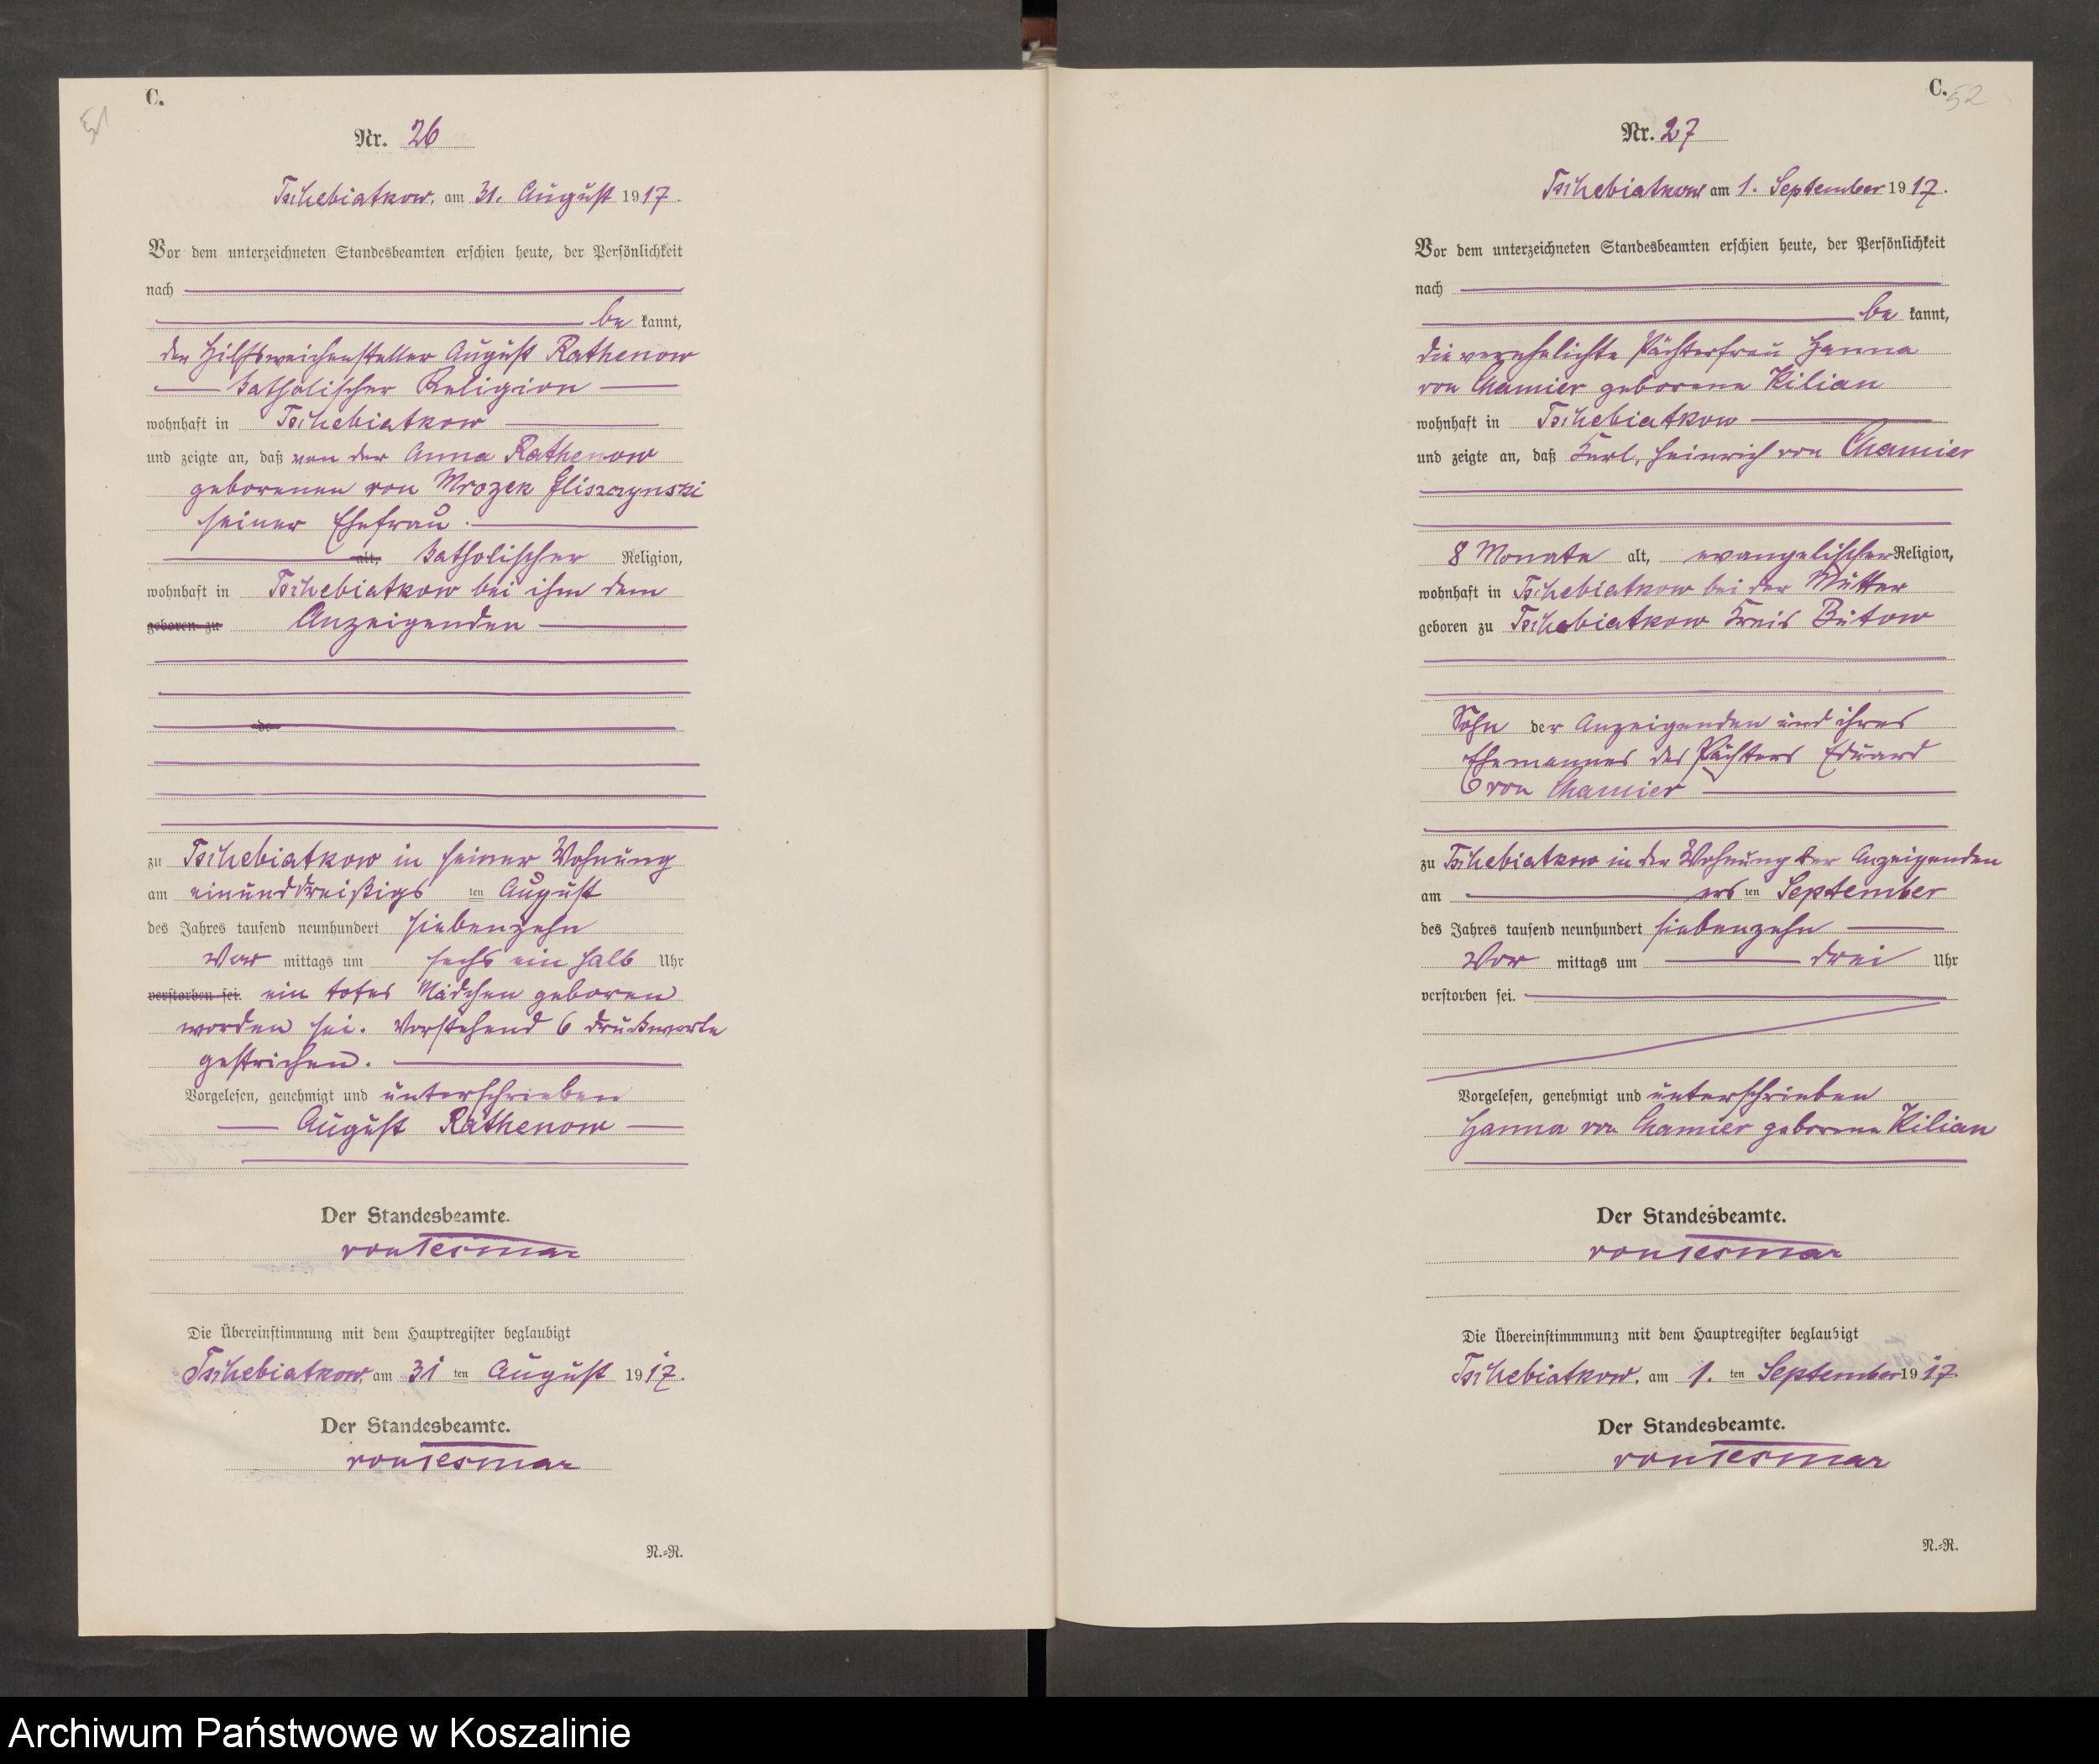 C.
51
Nr. 26
Tschebiatkow, am 31. August 1917.
Vor dem unterzeichneten Standesbeamten erschien heute, der Persönlichkeit
nach
be kannt,
der Hilfsweichensteller August Rathenow
katholischer Religion
wohnhaft in Tschebiatkow
und zeigte an, daß von der Anna Rathenow
geborenen von Mrozek Gliszczynski
seiner Ehefrau.
alt, katholischer Religion,
wohnhaft in Tschebiatkow bei ihm dem
geboren zu Anzeigenden
de
zu Tschebiatkow in seiner Wohnung
am einunddreißigs ten August
des Jahres tausend neunhundert siebenzehn
Vor mittags um sechs ein halb Uhr
verstorben sei. ein totes Mädchen geboren
worden sei. Vorstehend 6 Druckworte
gestrichen.
Vorgelesen, genehmigt und unterschrieben
August Rathenow
Der Standesbeamte.
von Tesmar
Die Übereinstimmung mit dem Hauptregister beglaubigt
Tschebiatkow, am 31 ten August 1917.
Der Standesbeamte.
von Tesmar
N.-R.
C. 52
Nr. 27
Tschebiatkow am 1. September 1917.
Vor dem unterzeichneten Standesbeamten erschien heute, der Persönlichkeit
nach
be kannt,
die verehelichte Pächterfrau Hanna
von Chamier geborene Kilian
wohnhaft in Tschebiatkow
und zeigte an, daß Karl, Heinrich von Chamier
8 Monate alt, evangelischer Religion,
wohnhaft in Tschebiatkow bei der Mutter
geboren zu Tschebiatkow Kreis Bütow
Sohn der Anzeigenden und ihres
Ehemannes des Pächters Eduard
von Chamier
zu Tschebiatkow in der Wohnung der Anzeigenden
am ers ten September
des Jahres tausend neunhundert siebenzehn
Vor mittags um drei Uhr
verstorben sei.
Vorgelesen, genehmigt und unterschrieben
Hanna von Chamier geborene Kilian
Der Standesbeamte.
von Tesmar
Die Übereinstimmung mit dem Hauptregister beglaubigt
Tschebiatkow, am 1. ten September 1917
Der Standesbeamte.
von Tesmar
N.-R.
Archiwum Państwowe w Koszalinie